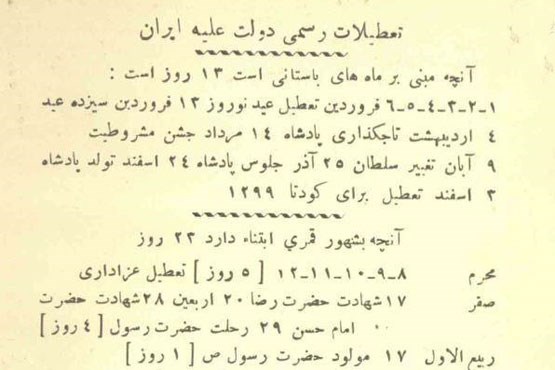 تعطیلات رسمی دولت علیه ایران
آنچه مبنی بر ماه های باستانی است ۱۳ روز است :
۱-۲-۳-۴-۵-۶ فروردین تعطیل عید نوروز ۱۳ فروردین سیزده عید
۴ اردیبهشت تاجگذاری پادشاه ۱۴ مرداد جشن مشروطیت
۹ آبان تغییر سلطان ۲۵ آذر جلوس پادشاه ۲۴ اسفند تولد پادشاه
۳ اسفند تعطیل برای کودتا ۱۲۹۹
آنچه بشهور قمری ابتناء دارد ۲۳ روز
محرم ۸-۹-۱۰-۱۱-۱۲ [ ۵ روز ] تعطیل عزاداری
صفر ۱۷ شهادت حضرت رضا ۲۰ اربعین ۲۸ شهادت حضرت
امام حسن ۲۹ رحلت حضرت رسول [ ۴ روز ]
ربیع الاول ۱۷ مولود حضرت رسول ص [ ۱ روز ]